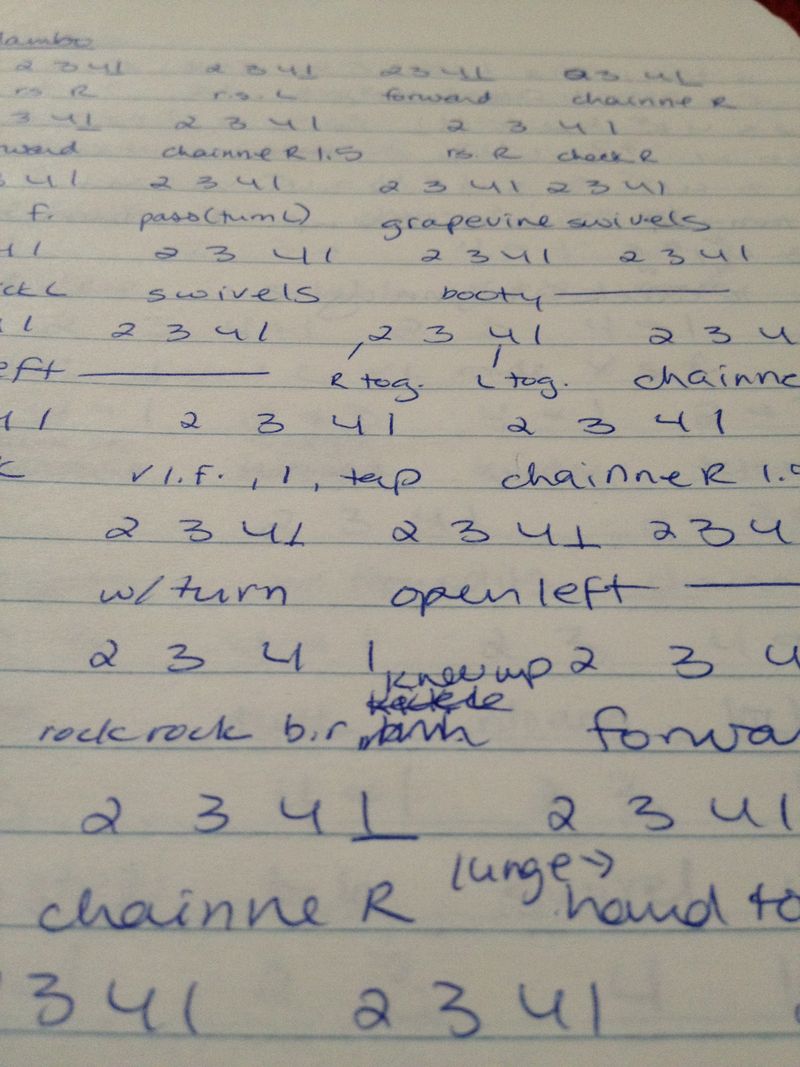 2 3 4 1 2 3 4 1 2 3 4 1 2 3 4 1
rs R r.s. L forward chainne R
3 4 1 2 3 4 1 2 3 4 1
chainne R 1.5 rs. R check R
4 1 2 3 4 1 2 3 4 1 2 3 4 1
f. pass(turn L) grapevine swivels
1 2 3 4 1 2 3 4 1 2 3 4 1
L swivels booty
1 2 3 4 1 2 3 4 1 2 3 4
eft R tog. L tog. chainne
4 1 2 3 4 1 2 3 4 1
r l.f., 1, tap chainne R 1.
2 3 4 1 2 3 4 1 2 3 4
w/ turn open left
2 3 4 1 2 3 4
knee up
rock rock b.r, forwa
2 3 4 1 2 3 4 1
lunge →
chainne R hand to
3 4 1 2 3 4 1